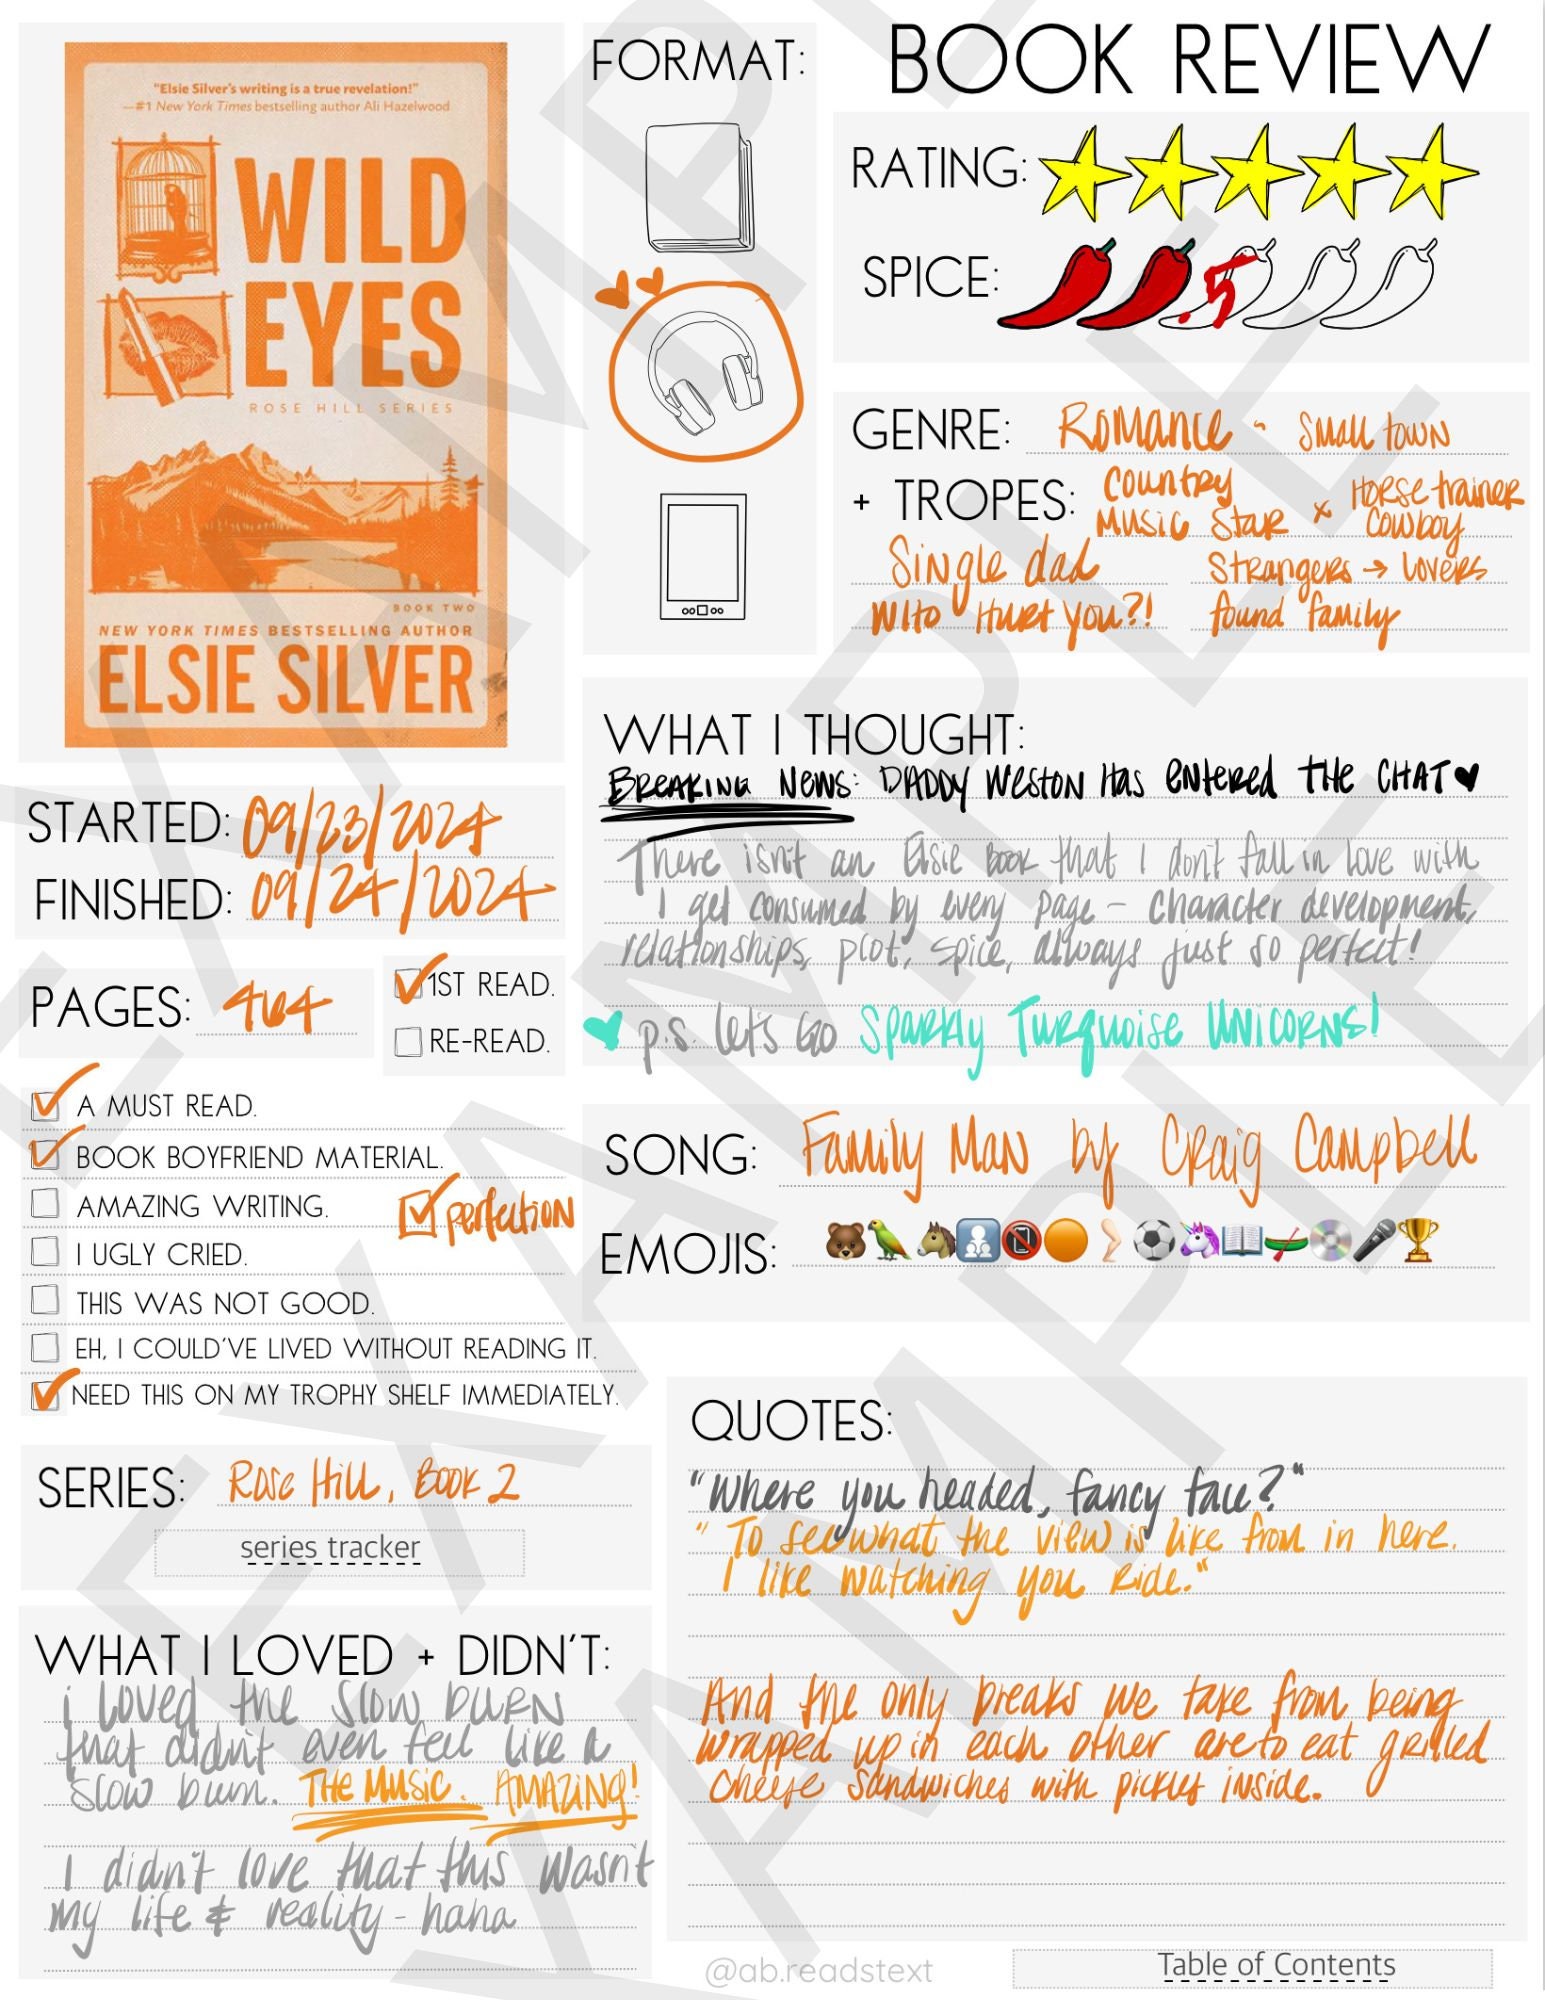 "Elsie Silver's writing is a true revelation!"
—#1 New York Times bestselling author Ali Hazelwood
WILD
EYES
ROSE HILL SERIES
BOOK TWO
NEW YORK TIMES BESTSELLING AUTHOR
ELSIE SILVER
FORMAT:
BOOK REVIEW
RATING:
SPICE:
.5
GENRE: ROMANCE - SMALL TOWN
+ TROPES: COUNTRY MUSIC STAR x HORSE TRAINER COWBOY
Single dad
STRANGERS → LOVERS
WHO HURT YOU?!
found family
STARTED: 09/23/2024
FINISHED: 09/24/2024
PAGES: 464
1ST READ.
RE-READ.
A MUST READ.
BOOK BOYFRIEND MATERIAL.
AMAZING WRITING.
perfection
I UGLY CRIED.
THIS WAS NOT GOOD.
EH, I COULD'VE LIVED WITHOUT READING IT.
NEED THIS ON MY TROPHY SHELF IMMEDIATELY.
SERIES: Rose Hill, Book 2
series tracker
WHAT I LOVED + DIDN'T:
i loved the slow burn
that didn't even feel like a
slow burn. THE MUSIC. AMAZING!
I didn't love that this wasn't
my life & reality - haha
WHAT I THOUGHT:
BREAKING NEWS: DADDY WESTON HAS ENTERED THE CHAT ♥
There isn't an Elsie book that I don't fall in love with
I get consumed by every page - character development,
relationships, plot, spice, always just so perfect!
p.s. let's GO SPARKLY TURQUOISE UNICORNS!
SONG: Family Man by Craig Campbell
EMOJIS:
QUOTES:
"Where you headed, fancy face?"
"To see what the view is like from in here.
I like watching you ride."
And the only breaks we take from being
wrapped up in each other are to eat grilled
cheese sandwiches with pickles inside.
@ab.readstext
Table of Contents
EXAMPLE
EXAMPLE
EXAMPLE